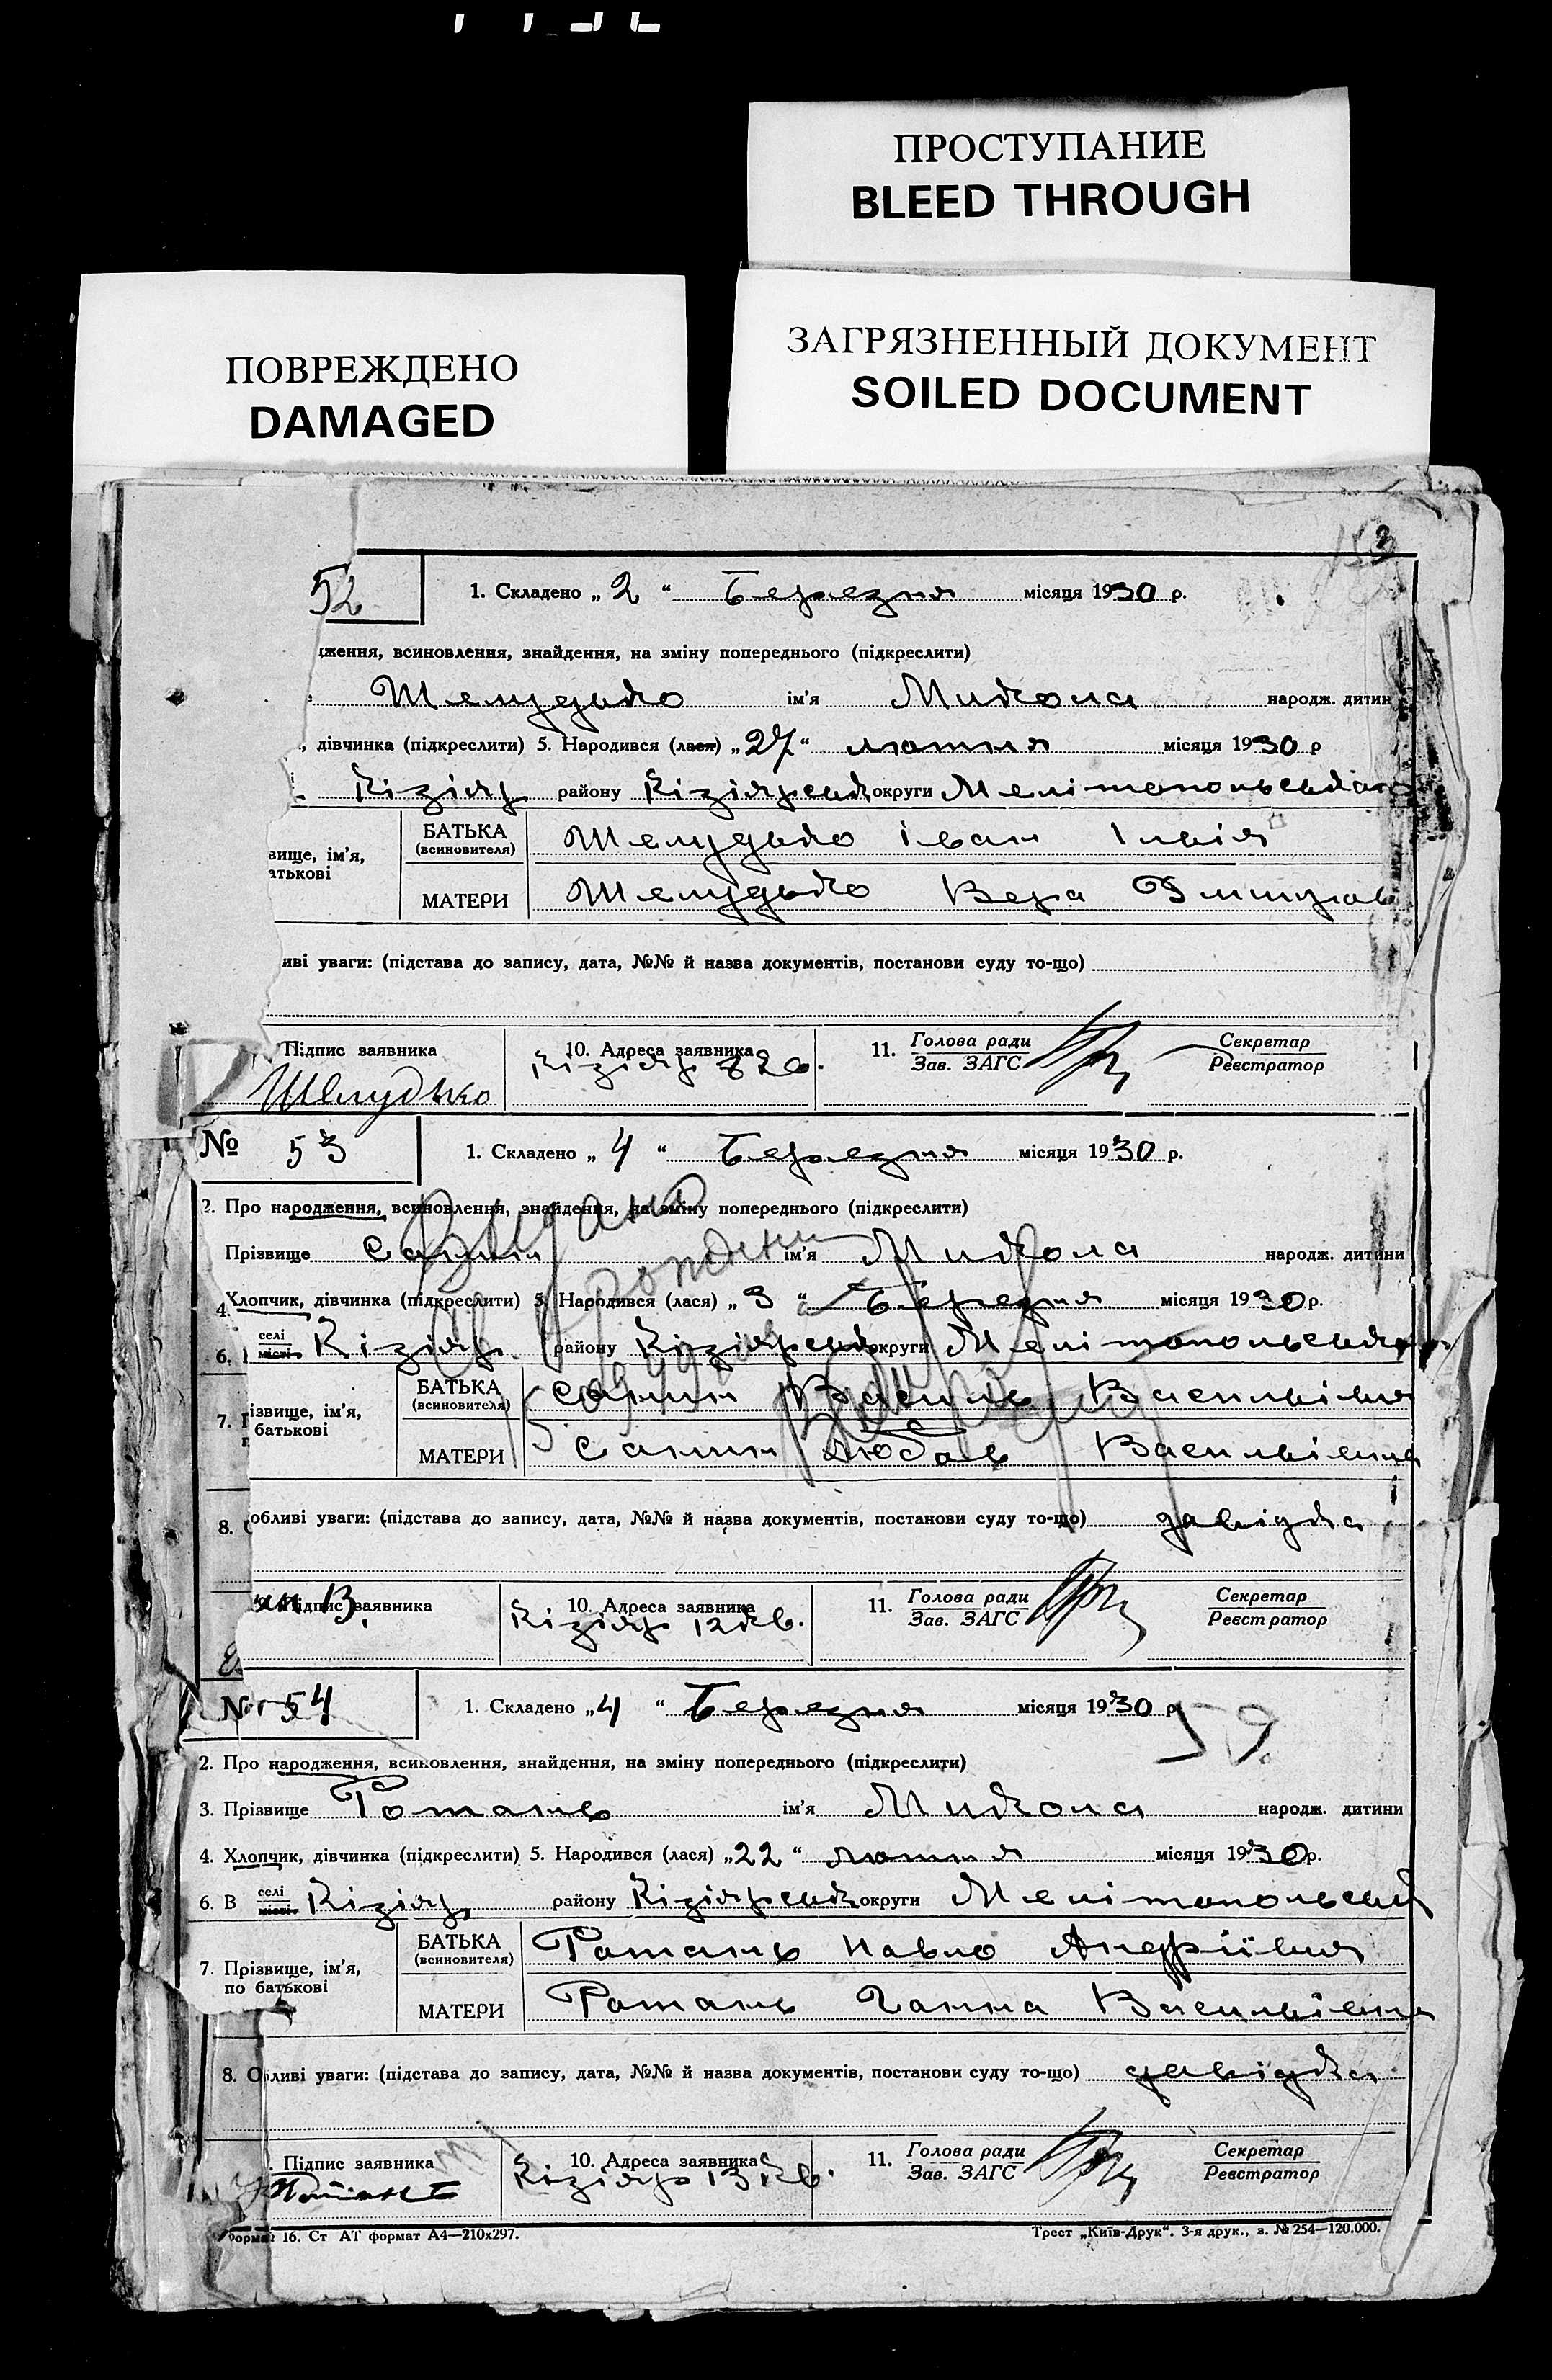 ПРОСТУПАНИЕ
BLEED THROUGH
ЗАГРЯЗНЕННЫЙ ДОКУМЕНТ
SOILED DOCUMENT
ПОВРЕЖДЕНО
DAMAGED
52
1. Складено „ 2 “ Березня місяця 1930 р.
дження, всиновлення, знайдення, на зміну попереднього (підкреслити)
Шелудько ім'я Микола народж. дитин
, дівчинка (підкреслити) 5. Народився (лася) „ 27 “ лютня місяця 1930 р
Кізіяр району Кізіярськ округи Мелітопольської
вище, ім'я,
атькові
БАТЬКА
(всиновителя)
Шелудько Іван Ільїч
МАТЕРИ Шелудько Вера Дмитров
иві уваги: (підстава до запису, дата, №№ й назва документів, постанови суду то-що)
Підпис заявника
Шелудько
10. Адреса заявника
Кізіяр
11. Голова ради
Зав. ЗАГС
Секретар
Реєстратор
№ 53
1. Складено „ 4 “ Березня місяця 1930 р.
2. Про народження, всиновлення, знайдення, на зміну попереднього (підкреслити)
Прізвище ім'я Микола народж. дитини
4. Хлопчик, дівчинка (підкреслити) 5. Народився (лася) „ 3 “ Березня місяця 1930 р.
6. селі
місті Кізіяр району Кізіярськ округи Мелітопольської
7. ізвище, ім'я,
батькові
БАТЬКА
(всиновителя)
Василь Васильівич
МАТЕРИ Любов Васильівна
8. обливі уваги: (підстава до запису, дата, №№ й назва документів, постанови суду то-що) довідка
Підпис заявника
10. Адреса заявника
Кізіяр 12 кв.
11. Голова ради
Зав. ЗАГС
Секретар
Реєстратор
№ 54
1. Складено „ 4 “ Березня місяця 1930 р
59.
2. Про народження, всиновлення, знайдення, на зміну попереднього (підкреслити)
3. Прізвище Ротань ім'я Микола народж. дитини
4. Хлопчик, дівчинка (підкреслити) 5. Народився (лася) „ 22 “ лютня місяця 1930 р.
6. В селі
місті Кізіяр району Кізіярськ округи Мелітопольській
7. Прізвище, ім'я,
по батькові
БАТЬКА
(всиновителя)
Ротань Павло Андріївич
МАТЕРИ Ротань Ганна Васильівна
8. Обливі уваги: (підстава до запису, дата, №№ й назва документів, постанови суду то-що) довідка
. Підпис заявника
10. Адреса заявника
Кізіяр 13 кв.
11. Голова ради
Зав. ЗАГС
Секретар
Реєстратор
Форма 16. Ст АТ формат А4—210х297.
Трест „Київ-Друк“. 3-я друк., з. № 254—120.000.